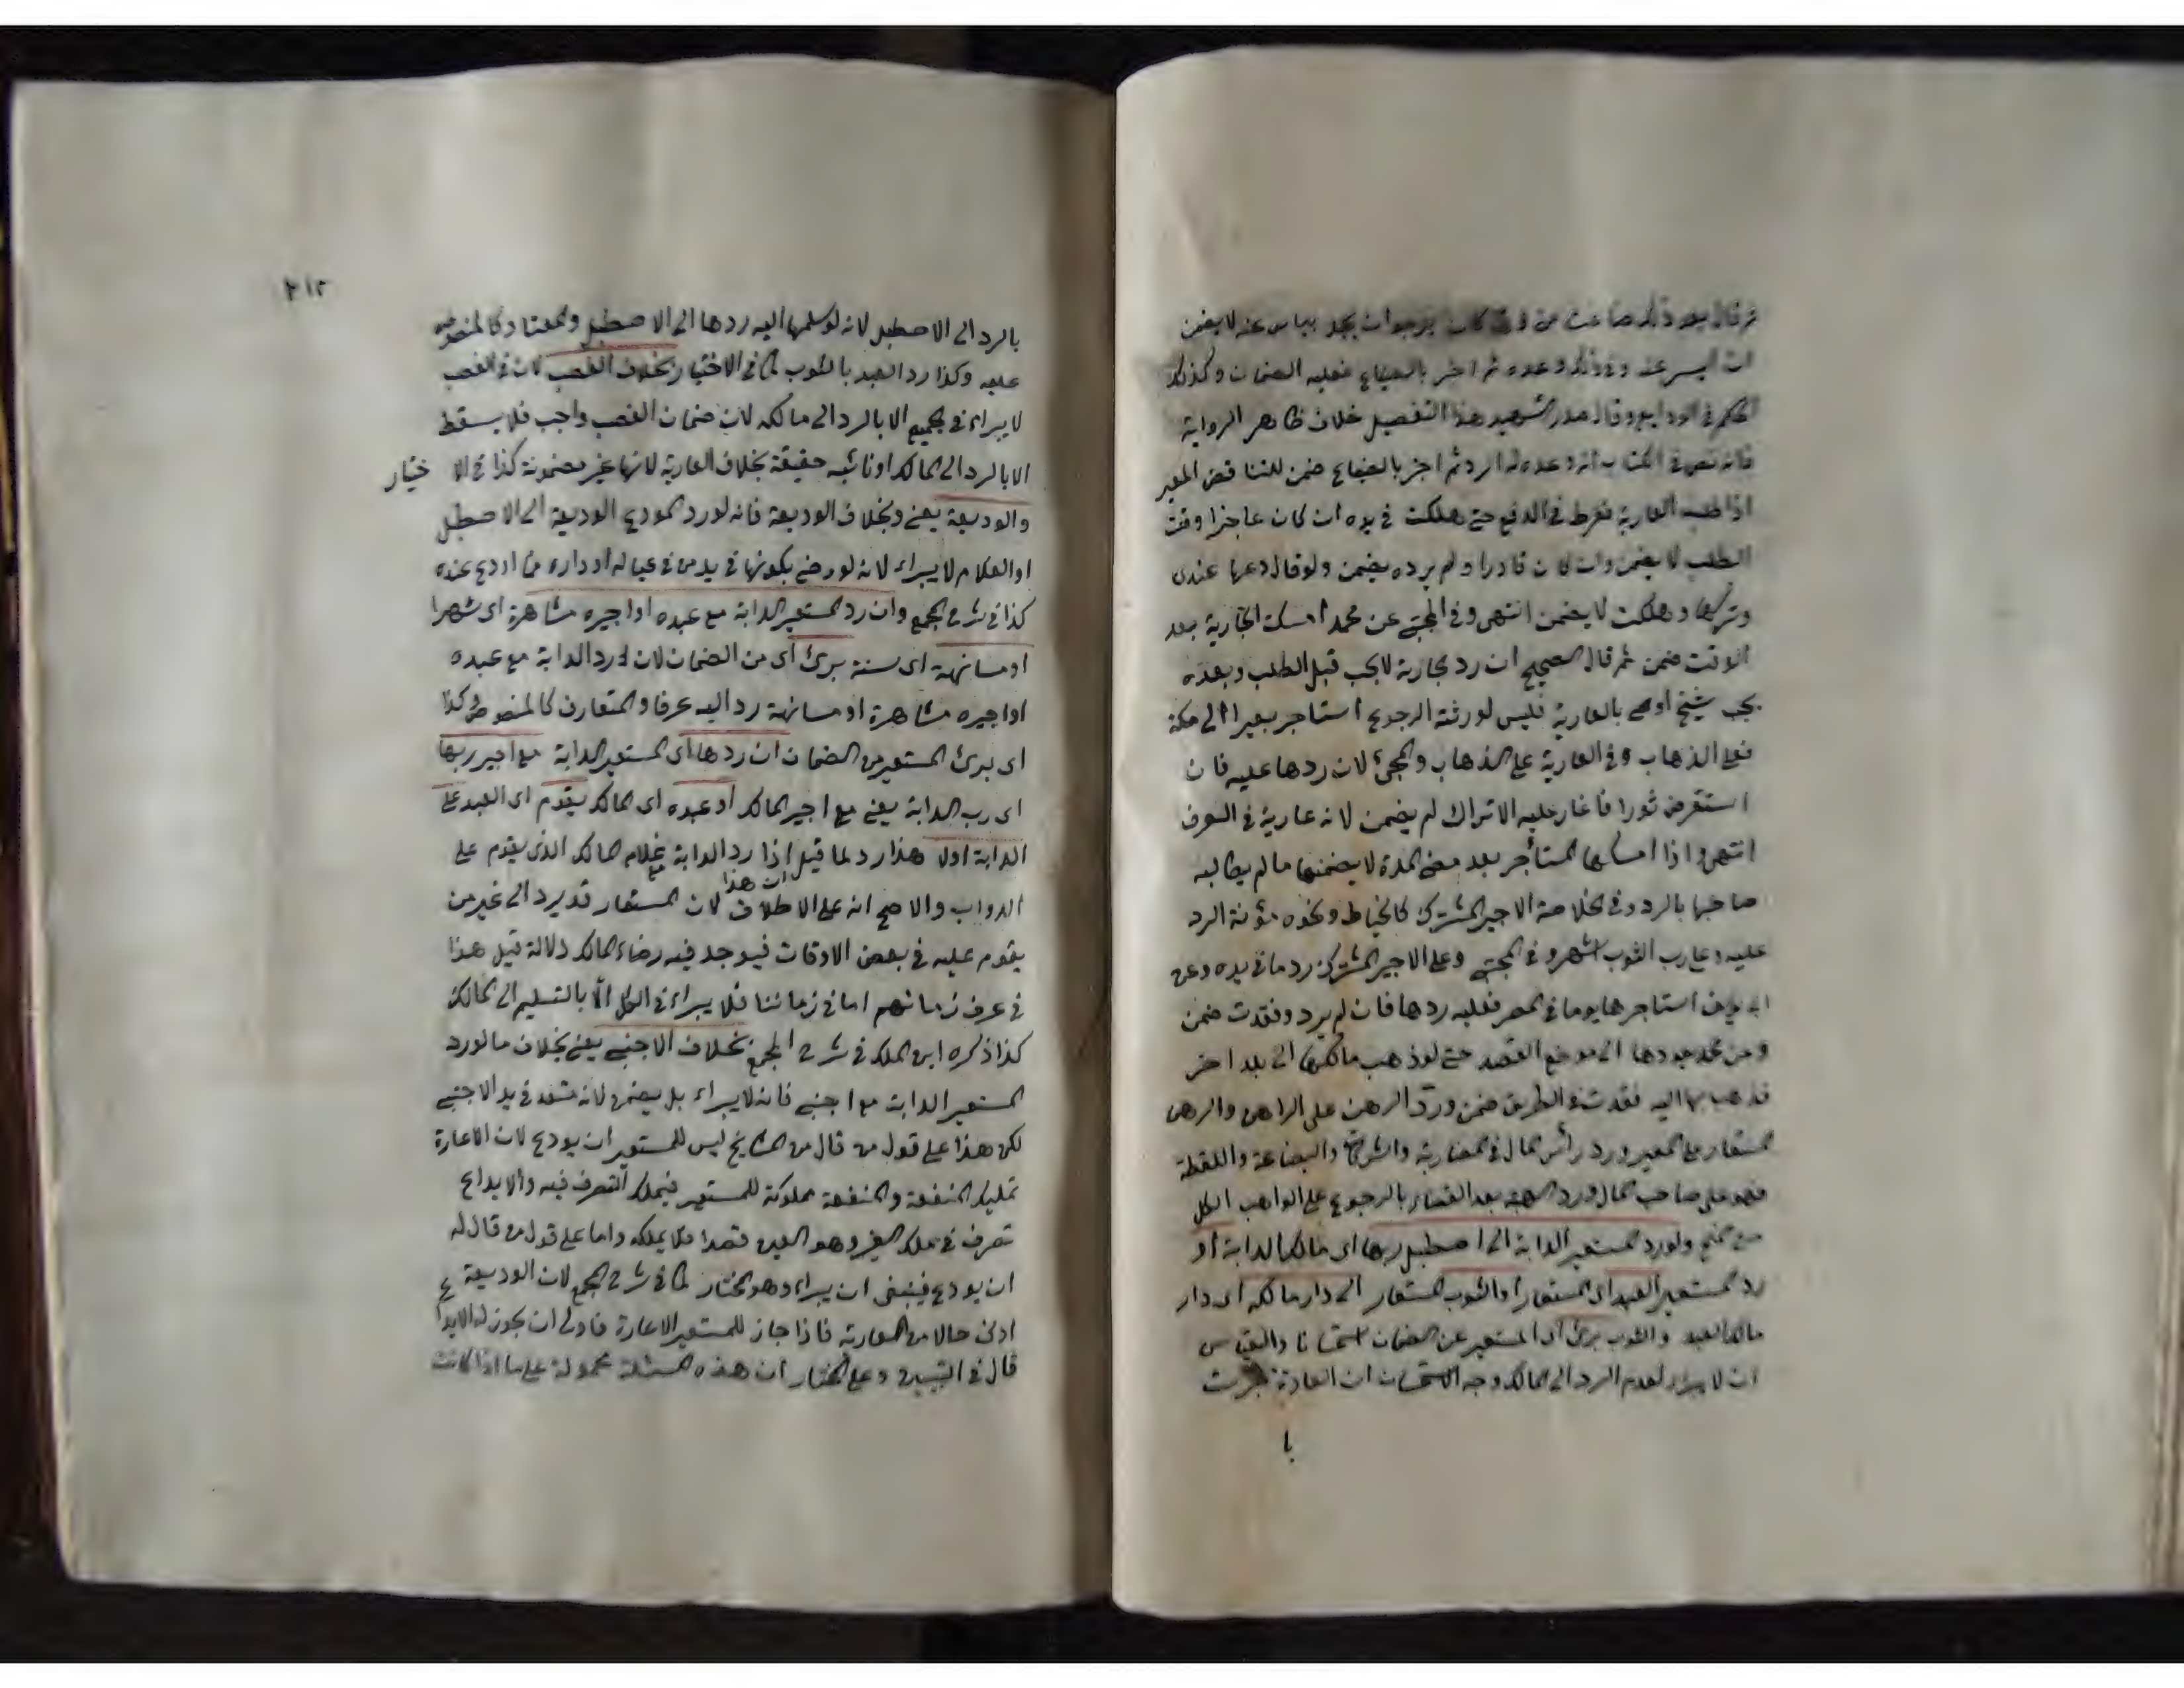 ثم قال بعد ذلك ضاعت من و كان يرجوا ان يجد بياس عنه لا يضمن
ان ايس عنه وفي ذلك وعده ثم اخبر بالضياع فعليه الضمان وكذلك
الحكم في الودايع وقال صدر الشهيد هذا التفصيل خلاف ظاهر الرواية
فانه نص في الكتاب انه وعده له الرد ثم اخبر بالضياع ضمن للتناقض المعير
اذا طلب العارية ففرط في الدفع حتى هلكت في يده ان كان عاجزا وقت
الطلب لا يضمن وان كان قادرا ولم يرده يضمن ولو قال دعها عندى
وتركها وهلكت لا يضمن انتهى وفي المجتبى عن محمد امسك الجارية بعد
الوقت ضمن ثم قال الصحيح ان رد الجارية لا يجب قبل الطلب وبعده
يجب شيخ اوصى بالعارية فليس لورثته الرجوع استاجر بعيرا الى مكة
فعلى الذهاب وفي العارية على الذهاب والمجئ لان ردها عليه فان
استقرض ثورا فاغار عليه الاتراك لم يضمن لانه عارية في العرف
انتهى واذا امسكها المستأجر بعد مضى المدة لا يضمنها ما لم يطالبه
صاحبها بالرد وفي الخلاصة الاجير المشترك كالخياط ونحوه مؤنة الرد
عليه وعلى رب الثوب اشهر وفي المجتبى وعلى الاجير المشترك رد ما في يده وعن
ابى يوسف استاجرها يوما في المصر فعليه ردها فان لم يرد ونفقدت ضمن
وعن محمد يعودها الى موضع القصد حتى لو ذهب مالكها الى بلد اخر
فذهب بها اليه ففقدت في الطريق ضمن ورد الرهن على الراهن والرهن
المستعار على المعير ورد رأس المال في المضاربة والشركة والبضاعة واللقطة
فهو على صاحب المال ورد الهبة بعد القضاء بالرجوع على الواهب الكل
من المنح ولو رد المستعير الدابة الى اصطبل ربها اى مالك الدابة او
رد المستعير العبد اى المستعار او الثوب المستعار الى دار مالكه اى دار
مالك العبد والثوب برئ اى المستعير عن الضمان استحسانا والقياس
ان لا يبراء لعدم الرد الى المالك وجه الاستحسان ان العادة جرت
با
٢١٢
بالرد الى الاصطبل لانه لو سلمها اليه ردها الى الاصطبل والمعتاد كالمنصوص
عليه وكذا رد العبد بالثوب كما في الاختيار بخلاف الغصب لان في الغصب
لا يبراء في الجميع الا بالرد الى مالكه لان ضمان الغصب واجب فلا يسقط
الا بالرد الى المالك او نائبه حقيقة بخلاف العارية لانها غير مضمونة كذا في الا ختيار
والوديعة يعنى وبخلاف الوديعة فانه لو رد المودع الوديعة الى الاصطبل
او الغلام لا يبراء لانه لو رضى بكونها في يد من في عياله او داره لما اودع عنده
كذا في شرح المجمع وان رد المستعير الدابة مع عبده او اجيره مشاهرة اى شهرا
او مسانهة اى سنة برئ اى من الضمان لان له رد الدابة مع عبده
او اجيره مشاهرة او مسانهة رد اليه عرفا والمتعارف كالمنصوص وكذا
اى برئ المستعير من الضمان ان ردها اى المستعير الدابة مع اجير ربها
اى رب الدابة يعنى مع اجير المالك او عبده اى المالك يقوم اى العبد على
الدابة اولا هذا رد لما قيل ان هذا اذا رد الدابة مع غلام المالك الذى يقوم على
الدواب والاصح انه على الاطلاق لان المستعار قد يرد الى غير من
يقوم عليه في بعض الاوقات فيوجد فيه رضاء المالك دلالة قيل هذا
في عرف زمانهم اما في زماننا فلا يبراء في الكل الا بالتسليم الى المالك
كذا ذكره ابن الملك في شرح المجمع بخلاف الاجنبى يعنى بخلاف ما لو رد
المستعير الدابة مع اجنبى فانه لا يبراء بل يضمن لانه متعد في يد الاجنبى
لكن هذا على قول من قال من المشايخ ليس للمستعير ان يودع لان الاعارة
تمليك المنفعة والمنفعة مملوكة للمستعير فيملك التصرف فيه والايداع
تصرف في ملك الغير وهو العين قصدا فلا يملكه واما على قول من قال له
ان يودع فينبغى ان يبراء وهو المختار كما في شرح المجمع لان الوديعة
ادنى حالا من العارية فاذا جاز للمستعير الاعارة فاولى ان يجوز له الايداع
قال في التبيين وعلى المختار ان هذه المسئلة محمولة على ما اذا كانت